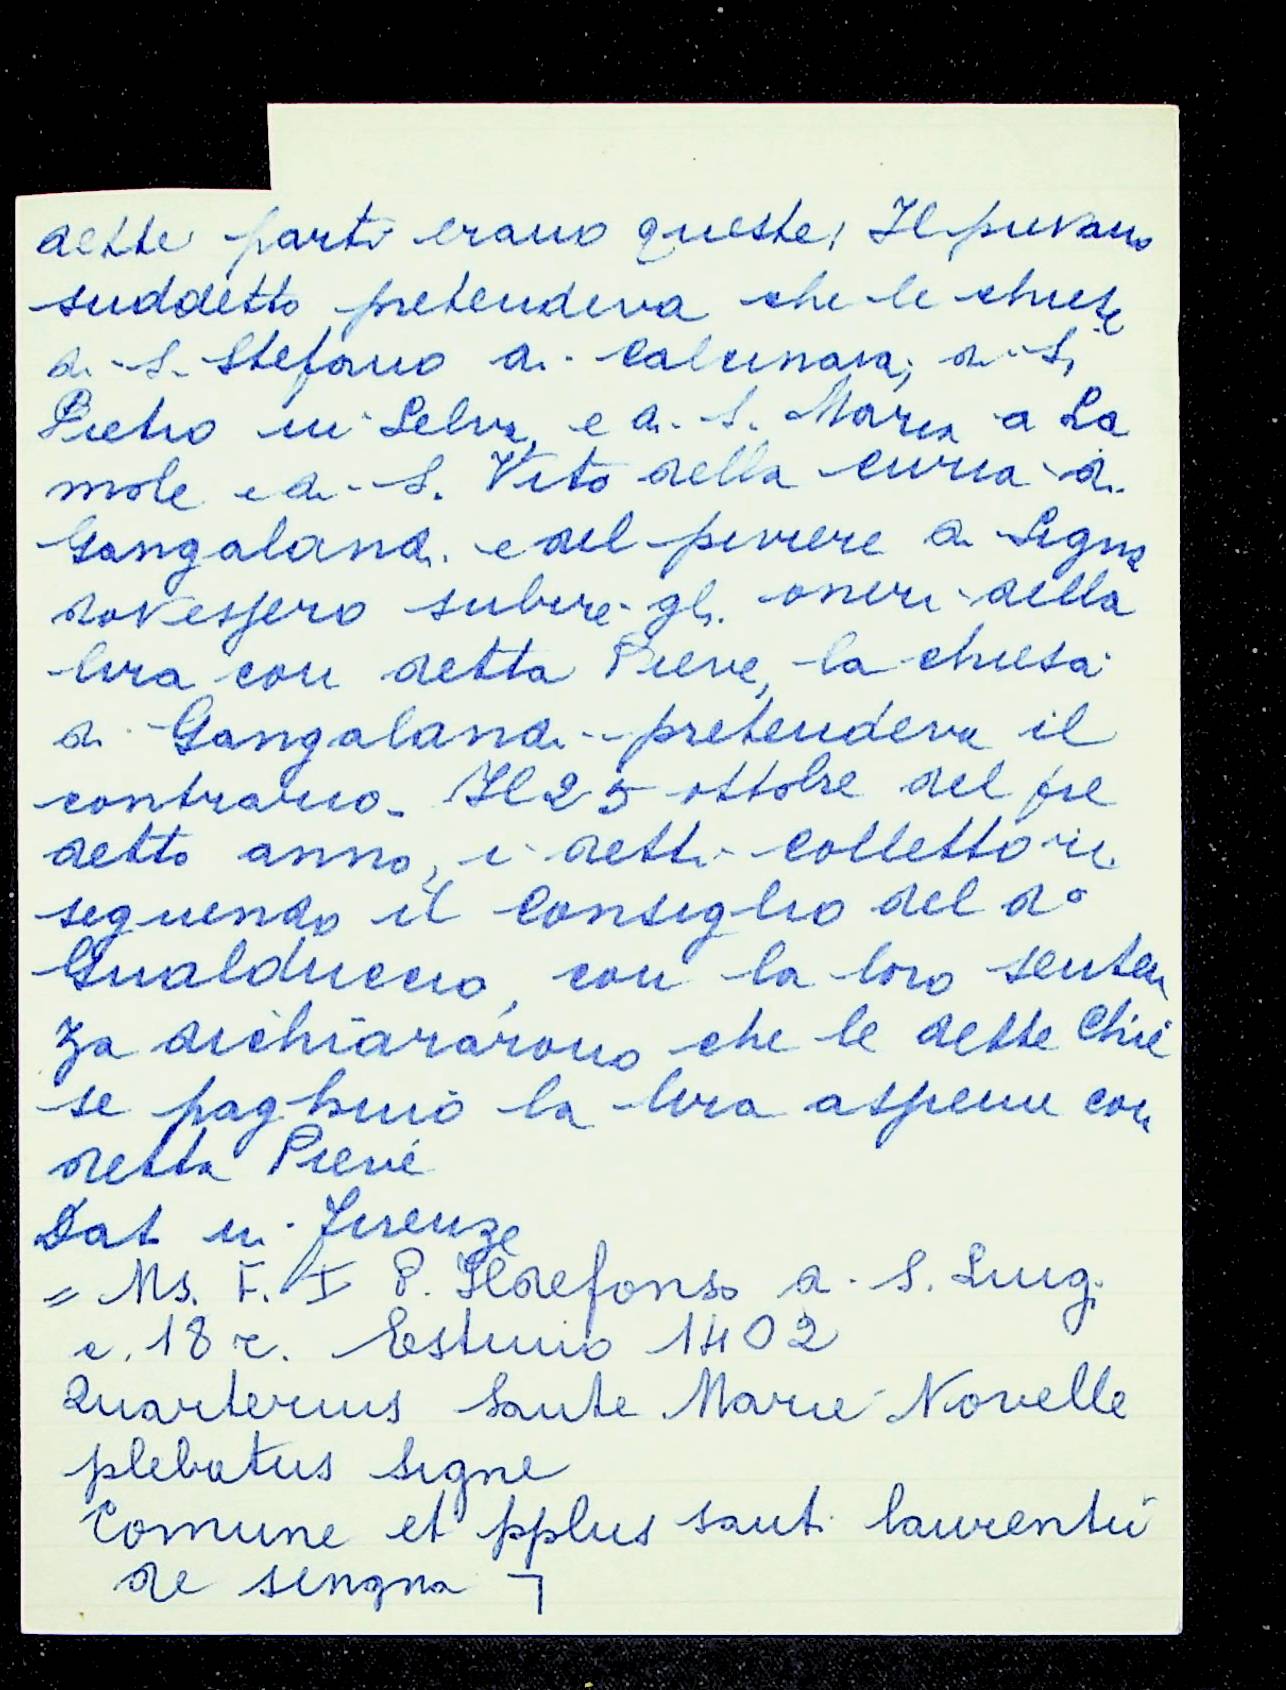 dette parti erano queste; Il pievano
suddetto pretendeva che le chiese
di S. Stefano a Calcinaia, di S.
Pietro in Selva, e di S. Maria a La
mole e di S. Vito della curia di
Gangalandi e del piviere di Signa
dovessero subire gli oneri della
lira con detta Pieve, la chiesa
di Gangalandi pretendeva il
contrario. Il 25 ottobre del pre
detto anno, i detti collettori
seguendo il Consiglio del do
Gualduccio, con la loro senten
za dichiararono che le dette Chie
se paghino la lira assieme con
detta Pieve
Dat in Firenze
= Ms. F. I P. Ildefonso di S. Luigi
c. 18 r. Estimo 1402
Quarterius Sante Marie Novelle
plebatus Signe
Comune et pplus santi laurentii
de singna ┐